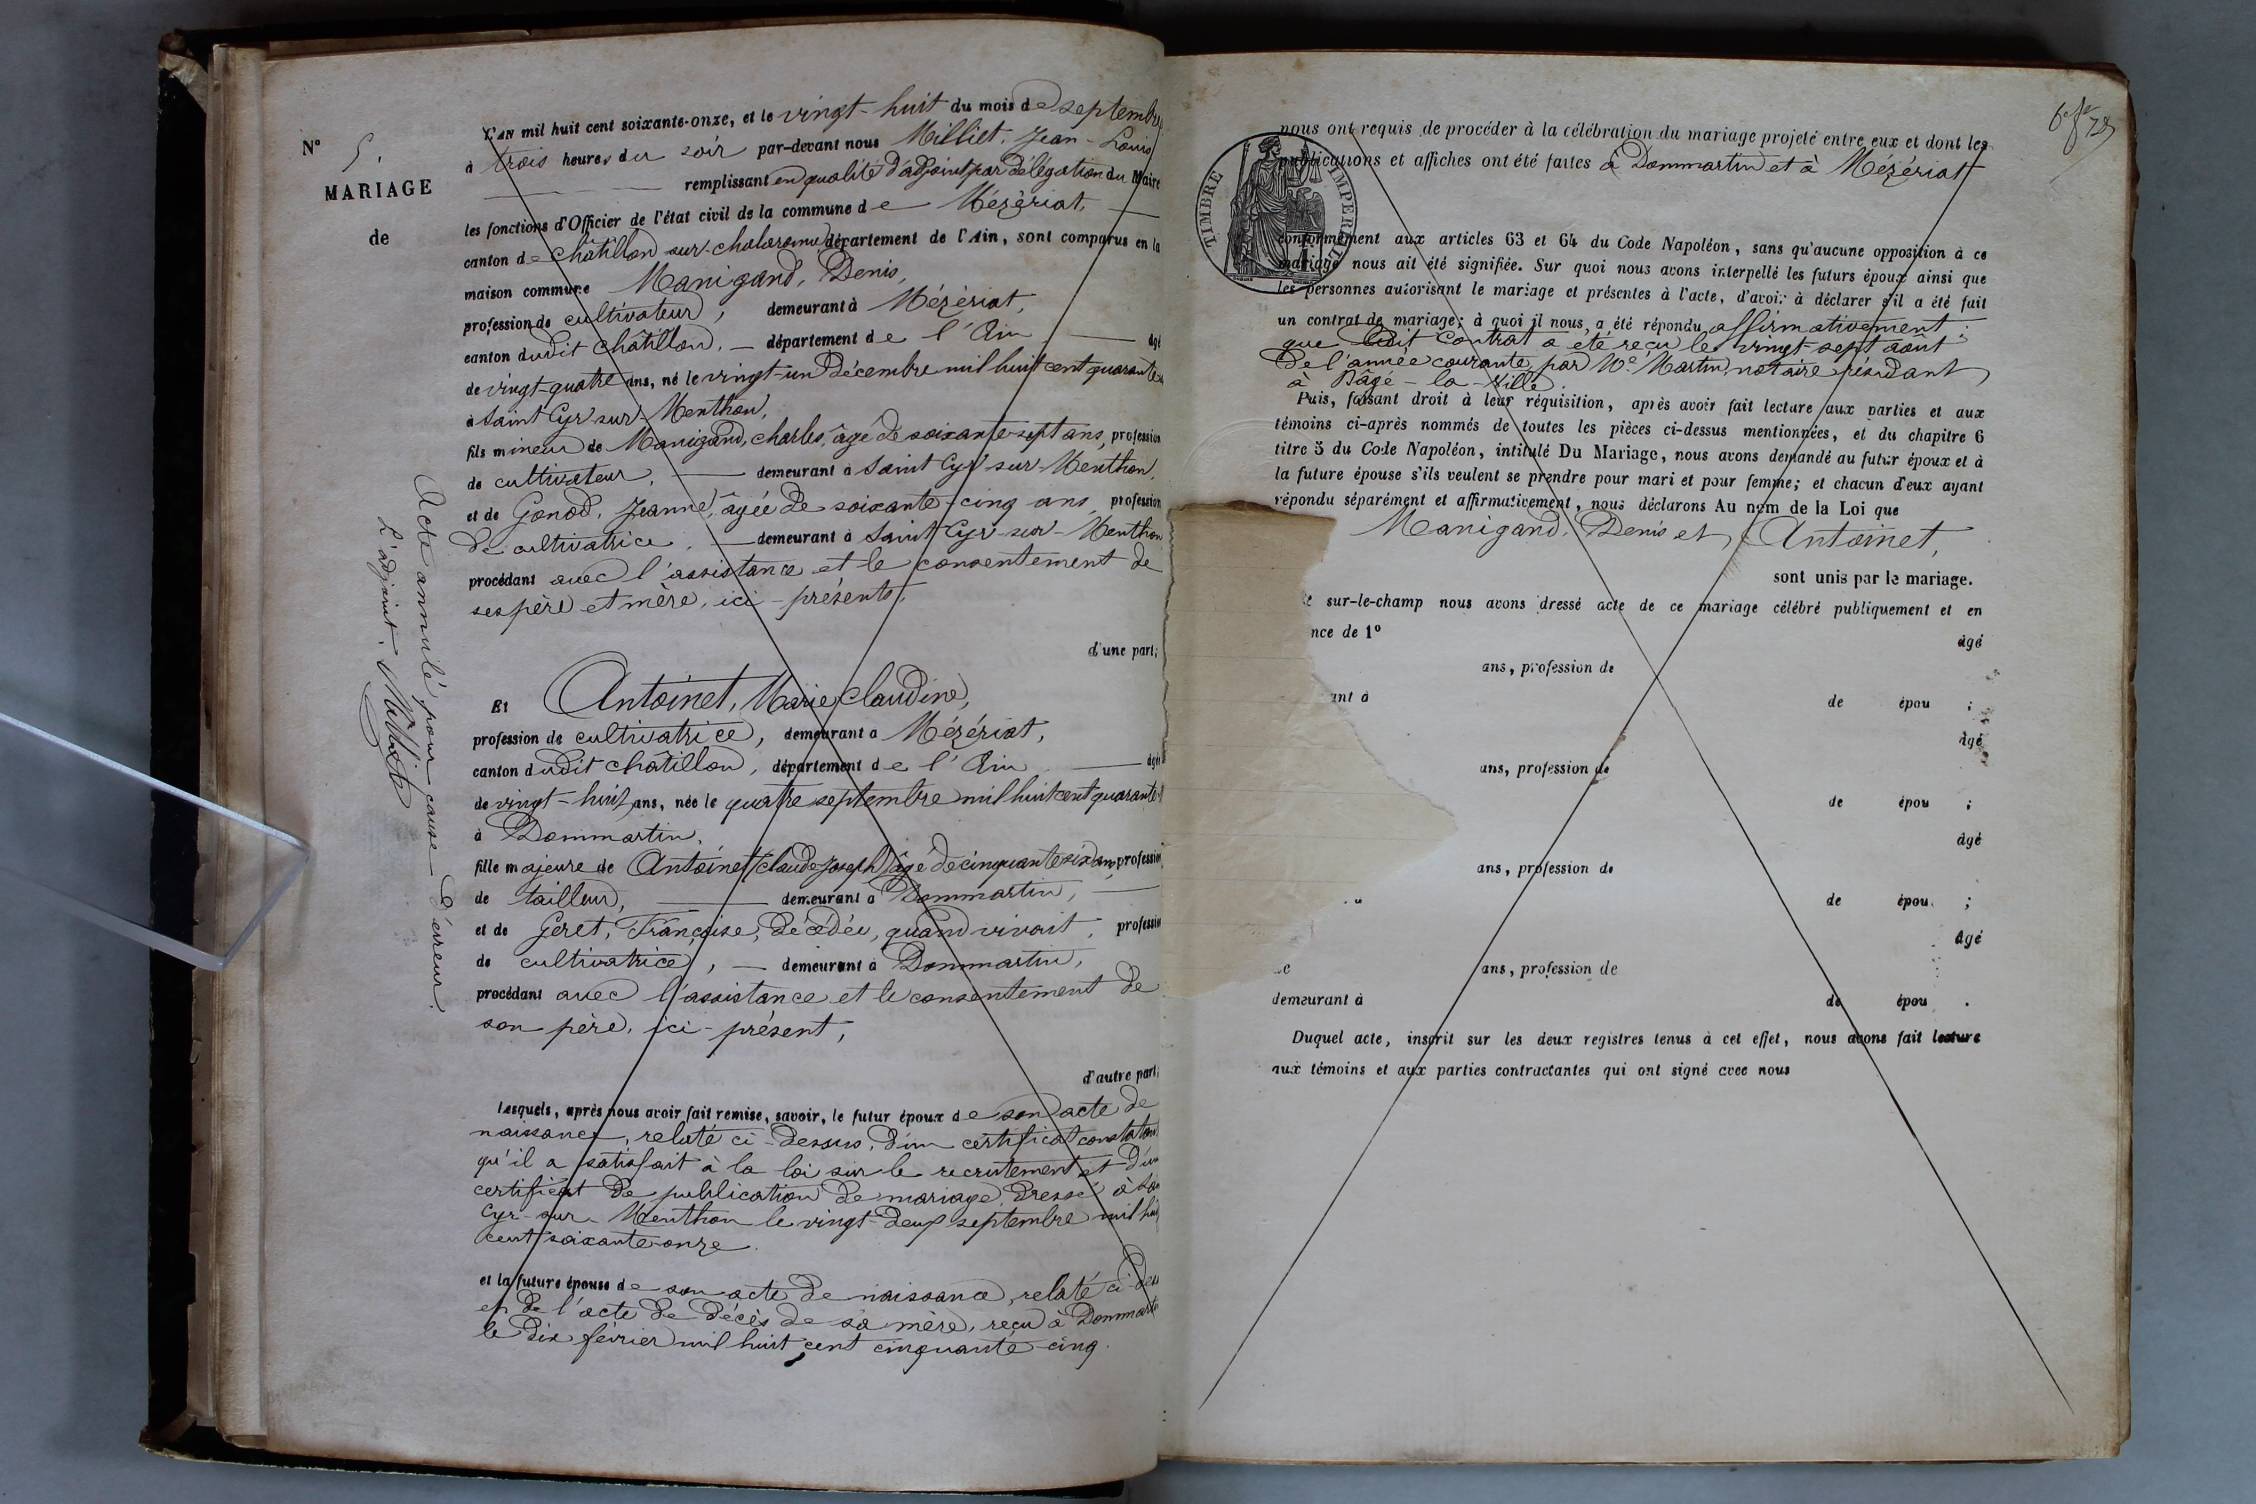 N° 5.
MARIAGE
de
Acte annulé pour cause d'erreur.
L'adjoint, Milliet
L'AN mil huit cent soixante-onze, et le vingt-huit du mois de septembre
à trois heures du soir par-devant nous Milliet, Jean-Louis
remplissant en qualité d'adjoint par délégation du Maire
les fonctions d'Officier de l'état civil de la commune de Mézériat,
canton de Châtillon sur-chalaronne département de l'Ain, sont comparus en la
maison commune Manigand, Denis,
profession de cultivateur, demeurant à Mézériat,
canton dudit Châtillon, département de l'Ain âgé
de vingt-quatre ans, né le vingt-un Décembre mil huit cent quarante
à Saint Cyr sur Menthon,
fils mineur de Manigand, Charles, âgé de soixante-sept ans, profession
de cultivateur, demeurant à Saint Cyr-sur-Menthon,
et de Gonod, Jeanne, âgée de soixante cinq ans, profession
de cultivatrice, demeurant à Saint Cyr-sur-Menthon
procédant avec l'assistance et le consentement de
ses père et mère, ici-présents,
d'une part;
Et Antoinet, Marie Claudine,
profession de cultivatrice, demeurant à Mézériat,
canton dudit Châtillon, département de l'Ain âgée
de vingt-huit ans, née le quatre septembre mil huit cent quarante
à Dommartin,
fille majeure de Antoinet (Claude Joseph) âgé de cinquante six ans, profession
de tailleur, demeurant à Dommartin,
et de Geret, Françoise, décédée, quand vivait, profession
de cultivatrice, demeurant à Dommartin,
procédant avec l'assistance et le consentement de
son père, ici-présent,
d'autre part;
Lesquels, après nous avoir fait remise, savoir, le futur époux de son acte de
naissance, relaté ci-dessus, d'un certificat constatant
qu'il a satisfait à la loi sur le recrutement et d'un
certificat de publication de mariage, dressé à
Cyr-sur-Menthon le vingt-deux septembre mil huit
cent soixante-onze.
et la future épouse de son acte de naissance, relaté ci-dess
et de l'acte de décès de sa mère, reçu à Dommartin
le dix février mil huit cent cinquante-cinq.
TIMBRE IMPERIAL
nous ont requis de procéder à la célébration du mariage projeté entre eux et dont les
publications et affiches ont été faites à Dommartin et à Mézériat
conformément aux articles 63 et 64 du Code Napoléon, sans qu'aucune opposition à ce
mariage nous ait été signifiée. Sur quoi nous avons interpellé les futurs époux ainsi que
les personnes autorisant le mariage et présentes à l'acte, d'avoir à déclarer s'il a été fait
un contrat de mariage; à quoi il nous a été répondu affirmativement;
que ledit Contrat a été reçu le vingt-sept août
de l'année courante, par Me. Martin, notaire résidant
à Bâgé-la-Ville.
Puis, faisant droit à leur réquisition, après avoir fait lecture aux parties et aux
témoins ci-après nommés de toutes les pièces ci-dessus mentionnées, et du chapitre 6
titre 5 du Code Napoléon, intitulé Du Mariage, nous avons demandé au futur époux et à
la future épouse s'ils veulent se prendre pour mari et pour femme; et chacun d'eux ayant
répondu séparément et affirmativement, nous déclarons Au nom de la Loi que
Manigand, Denis et Antoinet,
sont unis par le mariage.
sur-le-champ nous avons dressé acte de ce mariage célébré publiquement et en
nce de 1° âgé
ans, profession de
ant à de épou ;
âgé
ans, profession de
de épou ;
âgé
ans, profession de
de épou ;
âgé
ans, profession de
demeurant à de épou .
Duquel acte, inscrit sur les deux registres tenus à cet effet, nous avons fait lecture
aux témoins et aux parties contractantes qui ont signé avec nous